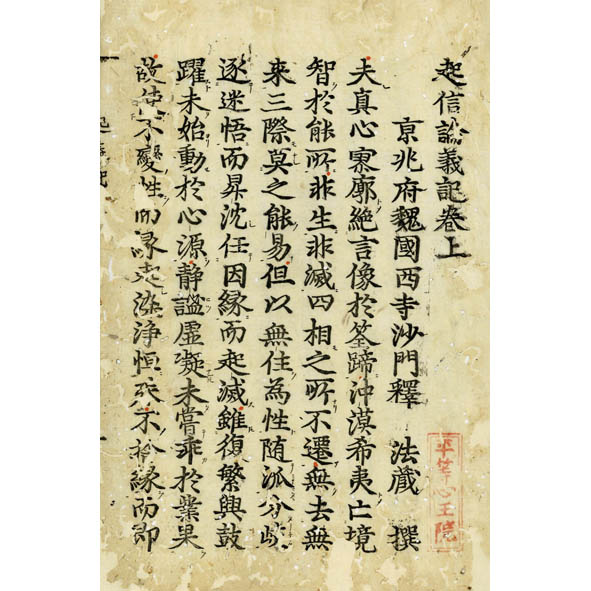 起信論義記卷上
京兆府魏國西寺沙門釋　法藏　撰
夫真心寥廓絶言像於筌蹄沖漠希夷亡境
智於能所非生非滅四相之所不遷無去無
来三際莫之能易但以無住為性随派分岐
逐迷悟而昇沈任因縁而起滅雖復繁興鼓
躍未始動於心源静謐虚凝未嘗乖於業果
故使不變性而縁起染浄恒殊不捨縁而即
平等心王院